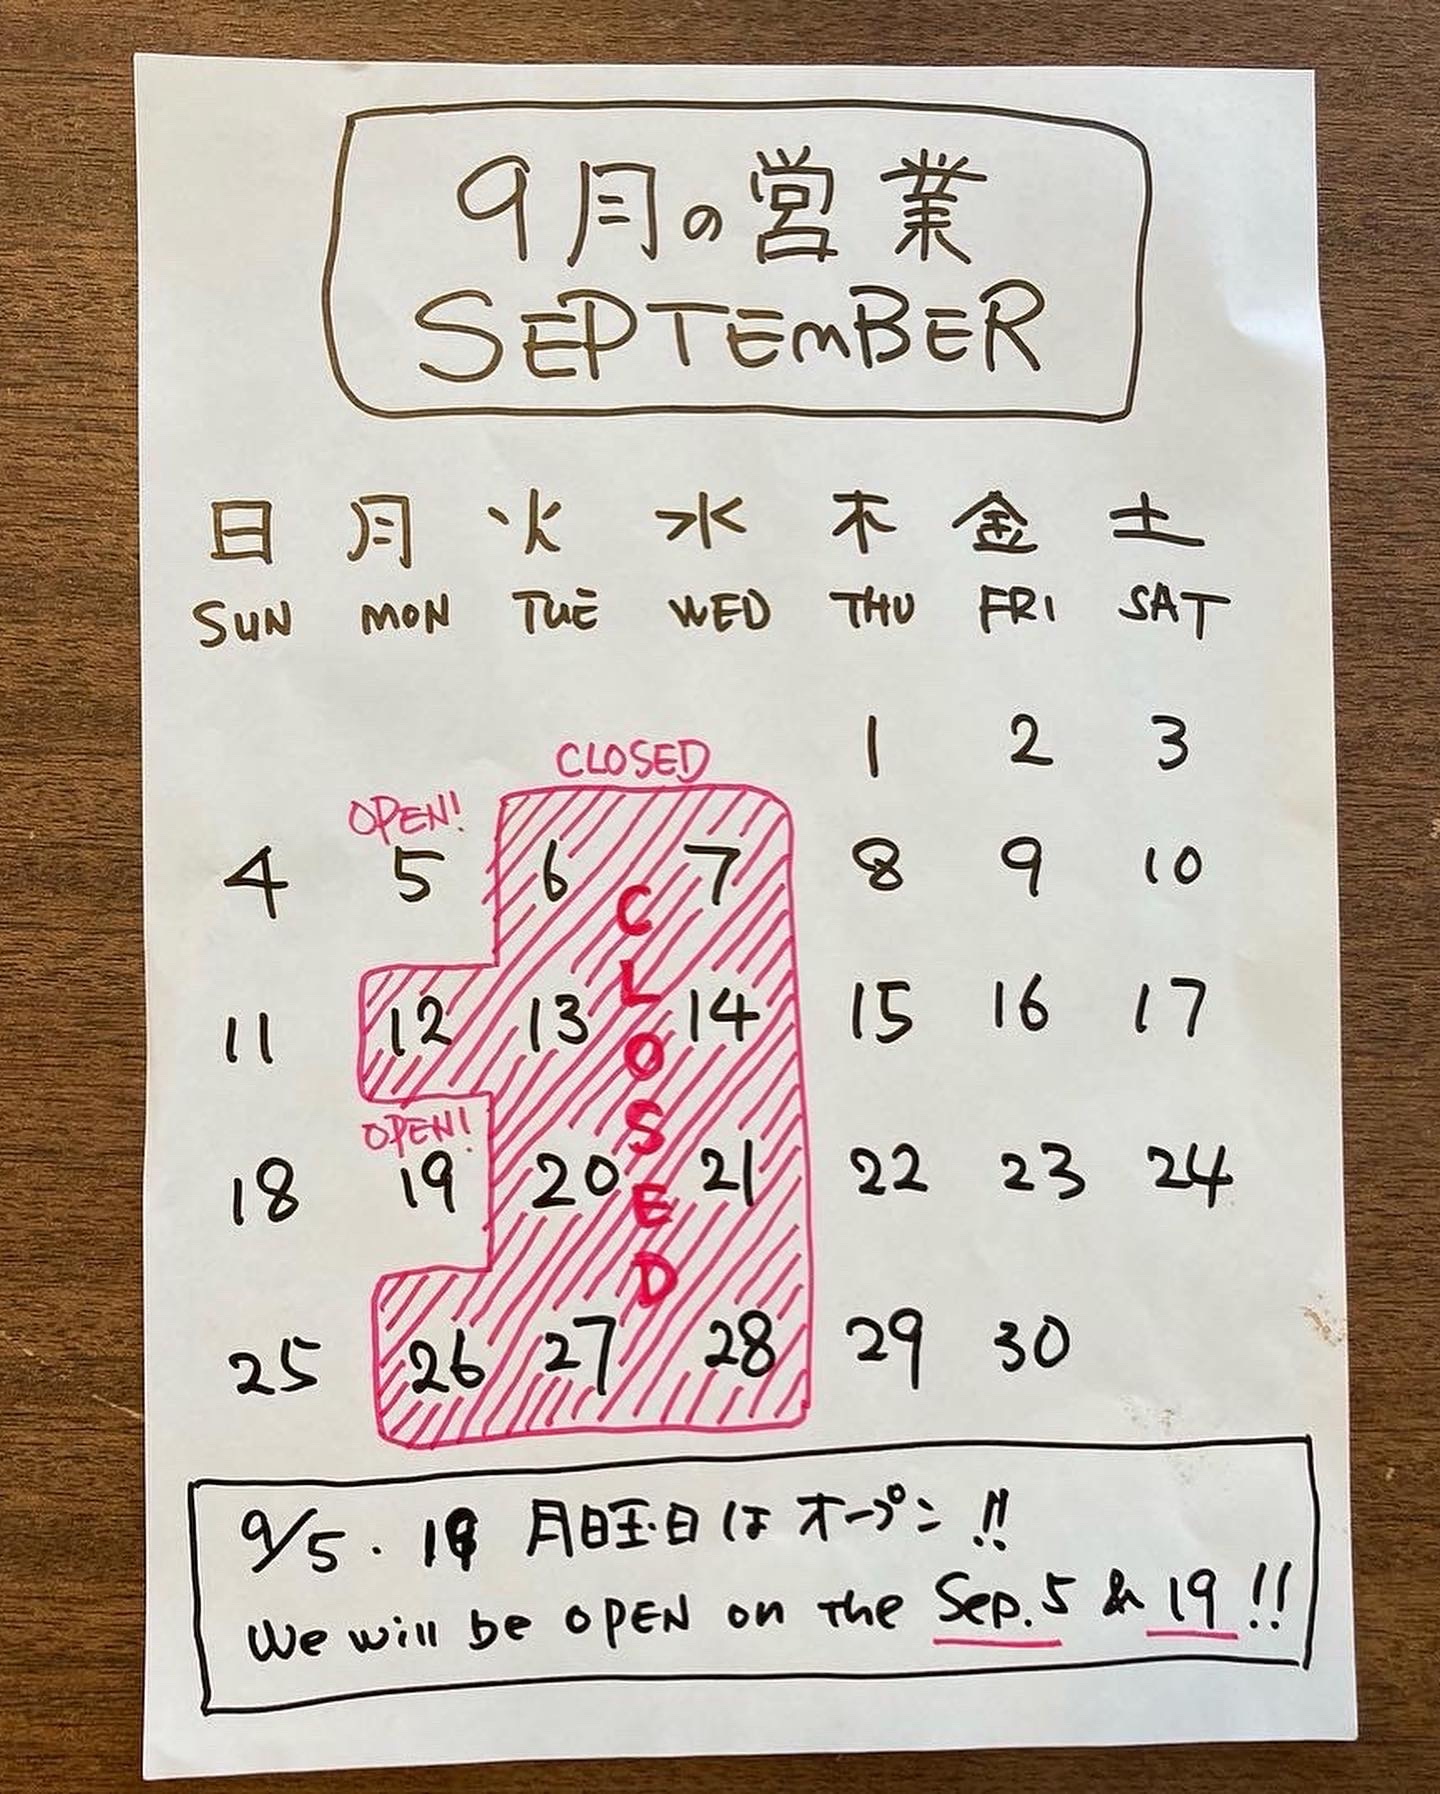 9月の営業
SEPTEMBER
日 月 火 水 木 金 土
SUN MON TUE WED THU FRI SAT
1 2 3
CLOSED
OPEN!
4 5 6 7 8 9 10
CLOSED
11 12 13 14 15 16 17
OPEN!
18 19 20 21 22 23 24
25 26 27 28 29 30
9/5・19 月曜日はオープン!!
We will be OPEN on the Sep. 5 & 19!!